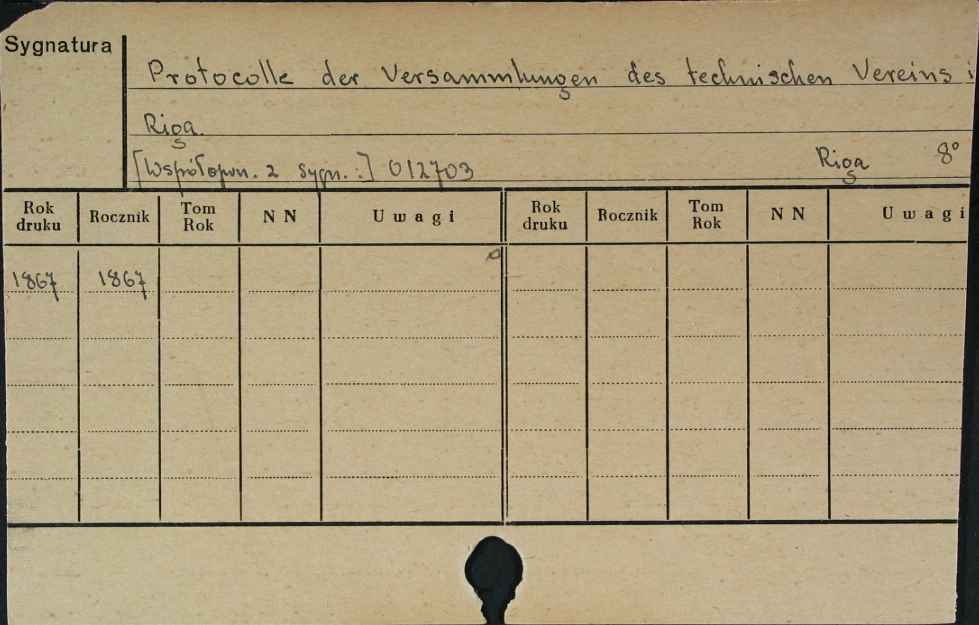 Sygnatura
Protocolle der Versammlungen des technischen Vereins i
Riga.
[Współopr. z sygn.:] 012703 Riga 8°
Rok druku Rocznik Tom Rok N N Uwagi Rok druku Rocznik Tom Rok N N Uwagi
1867 1867